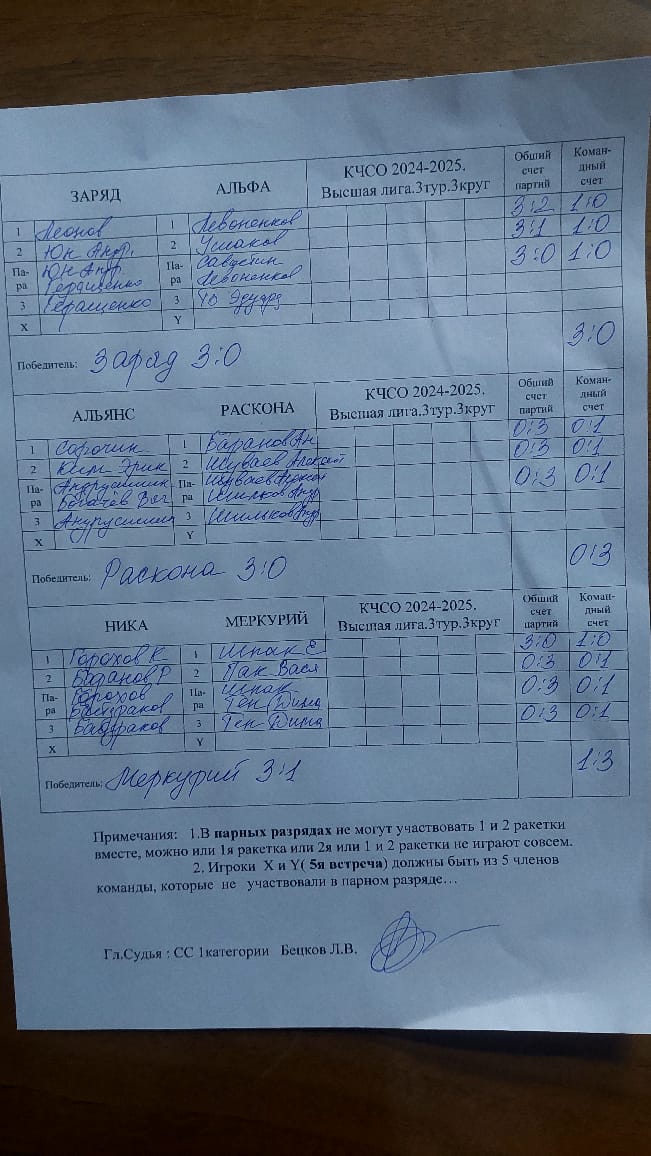 ЗАРЯД АЛЬФА КЧСО 2024-2025. Высшая лига.3тур.3круг Общий счет партий Коман-дный счет
1 Леонов 1 Левоненков 3:2 1:0
2 Юн Андр. 2 Ушаков 3:1 1:0
Па-ра Юн Андр. Па-ра Савостин 3:0 1:0
Геращенко Левоненков
3 Геращенко 3 Ю Эдуард
X Y
Победитель: Заряд 3:0 3:0
АЛЬЯНС РАСКОНА КЧСО 2024-2025. Высшая лига.3тур.3круг Общий счет партий Коман-дный счет
1 Сорочин 1 Баранов Ан 0:3 0:1
2 Ким Эрик 2 Шуваев Алексей 0:3 0:1
Па-ра Па-ра Шуваев Алексей 0:3 0:1
Богачёв Вяч Шильков Андр
3 3 Шильков Андр
X Y
Победитель: Раскона 3:0 0:3
НИКА МЕРКУРИЙ КЧСО 2024-2025. Высшая лига.3тур.3круг Общий счет партий Коман-дный счет
1 Горохов К 1 Шпак Е 3:0 1:0
2 Баданов Р 2 Пак Вася 0:3 0:1
Па-ра Горохов Па-ра Шпак 0:3 0:1
Тен Дима
3 3 Тен Дима 0:3 0:1
X Y
Победитель: Меркурий 3:1 1:3
Примечания: 1.В парных разрядах не могут участвовать 1 и 2 ракетки
вместе, можно или 1я ракетка или 2я или 1 и 2 ракетки не играют совсем.
2. Игроки X и Y( 5я встреча) должны быть из 5 членов
команды, которые не участвовали в парном разряде…
Гл.Судья : СС 1категории Бецков Л.В.